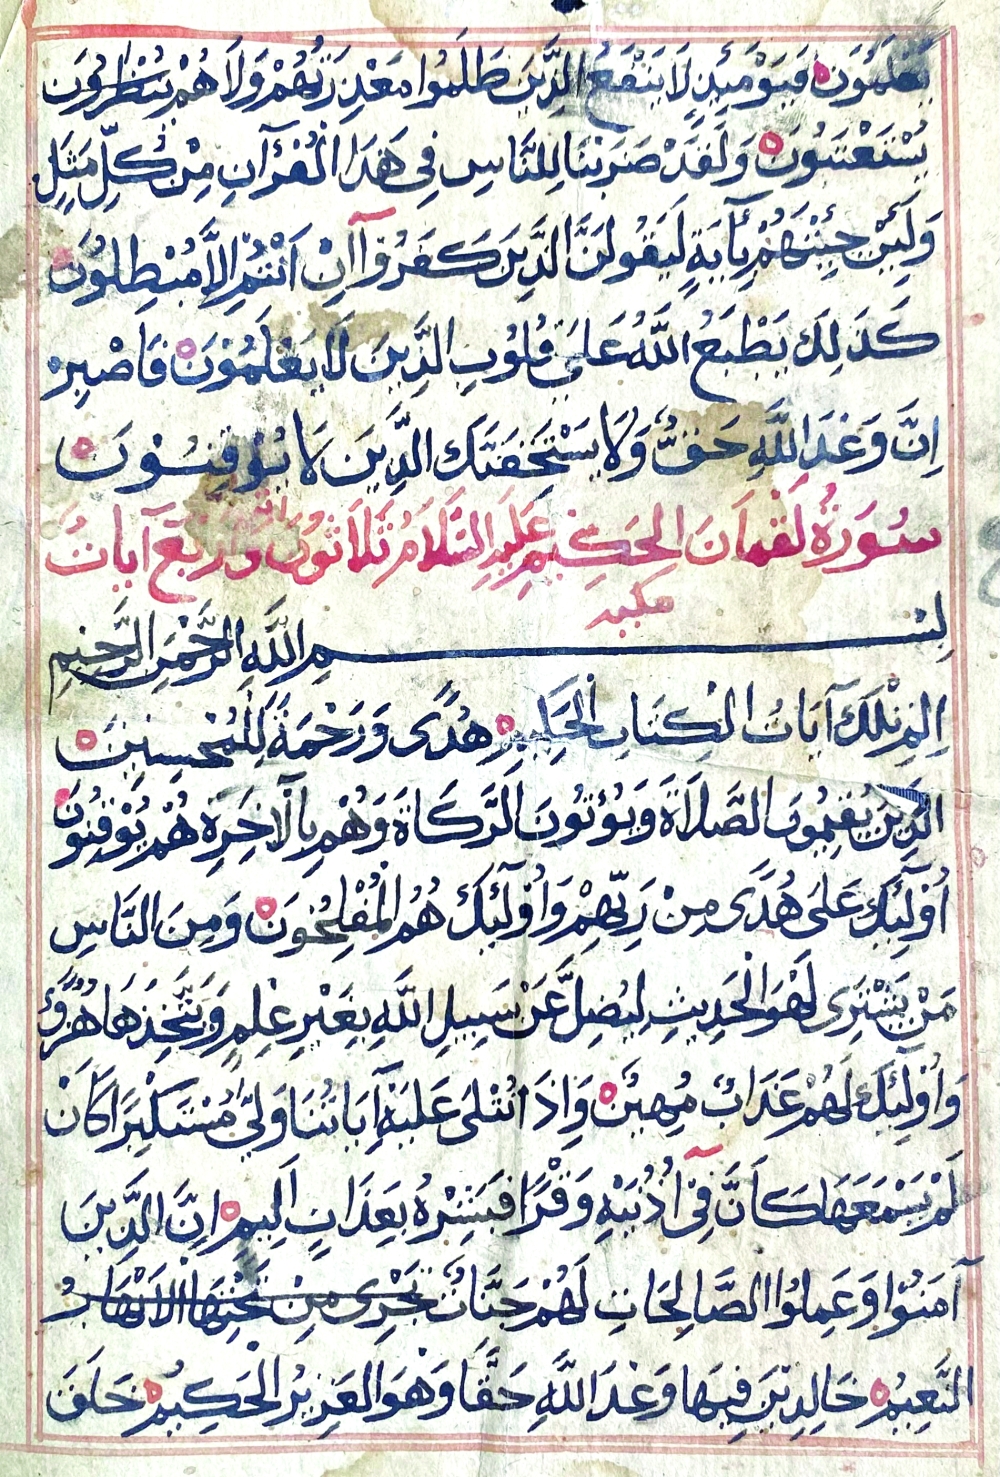 تَعْلَمُونَ فَيَوْمَئِذٍ لَا يَنْفَعُ الَّذِينَ ظَلَمُوا مَعْذِرَتُهُمْ وَلَا هُمْ يُنْظَرُونَ
يُسْتَعْتَبُونَ وَلَقَدْ ضَرَبْنَا لِلنَّاسِ فِى هَذَا الْقُرْآنِ مِنْ كُلِّ مَثَلٍ
وَلَئِنْ جِئْتَهُمْ بِآيَةٍ لَيَقُولَنَّ الَّذِينَ كَفَرُوآ اِنْ اَنْتُمْ اِلَّا مُبْطِلُونَ
كَذَلِكَ يَطْبَعُ اللَّهُ عَلَى قُلُوبِ الَّذِينَ لَا يَعْلَمُونَ فَاصْبِرْ
اِنَّ وَعْدَ اللَّهِ حَقٌّ وَلَا يَسْتَخِفَّنَّكَ الَّذِينَ لَا يُوْقِنُونَ
سُوْرَةُ لُقْمَانَ الحَكِيْمِ عَلَيْهِ السَّلَامُ ثَلَاثُونَ وَاَرْبَعَ آيَاتٌ
مكيه
بِسْمِ اللَّهِ الرَّحْمَنِ الرَّحِيمِ
الم تِلْكَ آيَاتُ الْكِتَابِ الْحَكِيمِ هُدًى وَرَحْمَةً لِلْمُحْسِنِينَ
الَّذِينَ يُقِيمُونَ الصَّلَاةَ وَيُؤْتُونَ الزَّكَاةَ وَهُمْ بِالْآخِرَةِ هُمْ يُوْقِنُونَ
اُوْلَئِكَ عَلَى هُدًى مِنْ رَبِّهِمْ وَاُوْلَئِكَ هُمُ الْمُفْلِحُونَ وَمِنَ النَّاسِ
مَنْ يَشْتَرِى لَهْوَ الْحَدِيثِ لِيُضِلَّ عَنْ سَبِيلِ اللَّهِ بِغَيْرِ عِلْمٍ وَيَتَّخِذَهَا هُزُوًا
وَاُوْلَئِكَ لَهُمْ عَذَابٌ مُهِينٌ وَاِذَا تُتْلَى عَلَيْهِ آيَاتُنَا وَلَّى مُسْتَكْبِرًا كَاَنْ
لَمْ يَسْمَعْهَا كَاَنَّ فِىٓ اُذُنَيْهِ وَقْرًا فَبَشِّرْهُ بِعَذَابٍ اَلِيمٍ اِنَّ الَّذِينَ
آمَنُوْا وَعَمِلُوا الصَّالِحَاتِ لَهُمْ جَنَّاتٌ تَجْرِى مِنْ تَحْتِهَا الْاَنْهَارُ
النَّعِيمُ خَالِدِيْنَ فِيهَا وَعْدَ اللَّهِ حَقًّا وَهُوَ الْعَزِيْزُ الْحَكِيمُ خَلَقَ